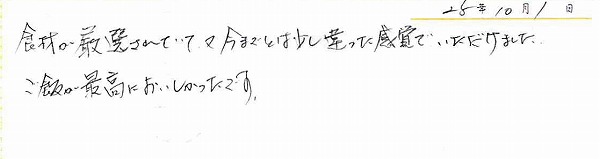 25年10月1日
食材が厳選されていて今までとは少し違った感覚でいただけました。
ご飯が最高においしかったです。